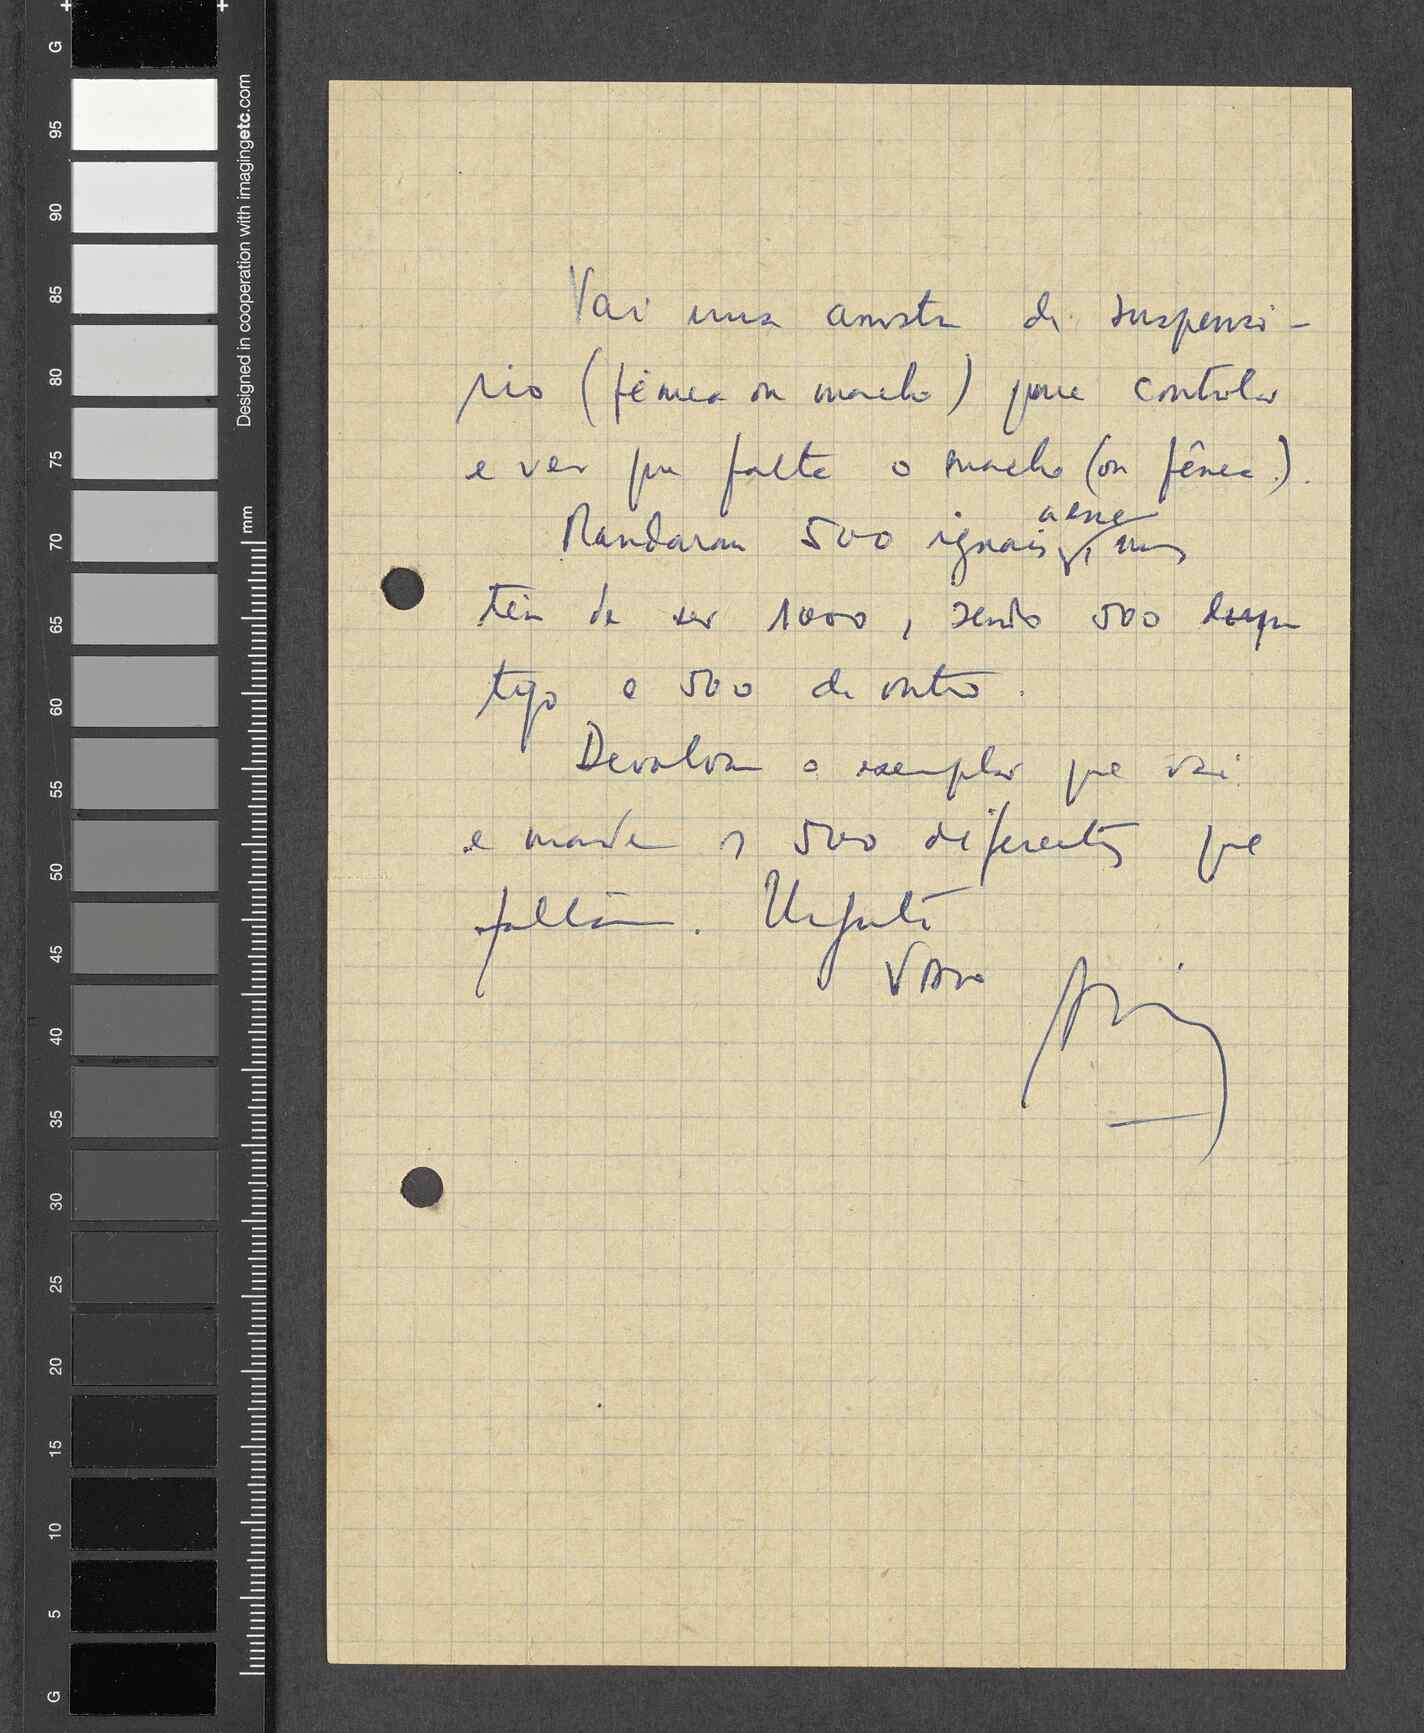 G
95
90
85
80
75
70
65
60
55
50
45
40
35
30
25
20
15
10
5
G
Designed in cooperation with imagingetc.com
mm
Vai uma amostra de suspensó-
rio (fêmea ou macho) para controlar
e ver que falta o macho (ou fêmea).
Mandaram 500 iguais a esse, mas
têm de ser 1000, sendo 500
tipo e 500 de outro.
Devolvam o exemplar que vai
e mandem os 500 diferentes que
faltam. Urgente